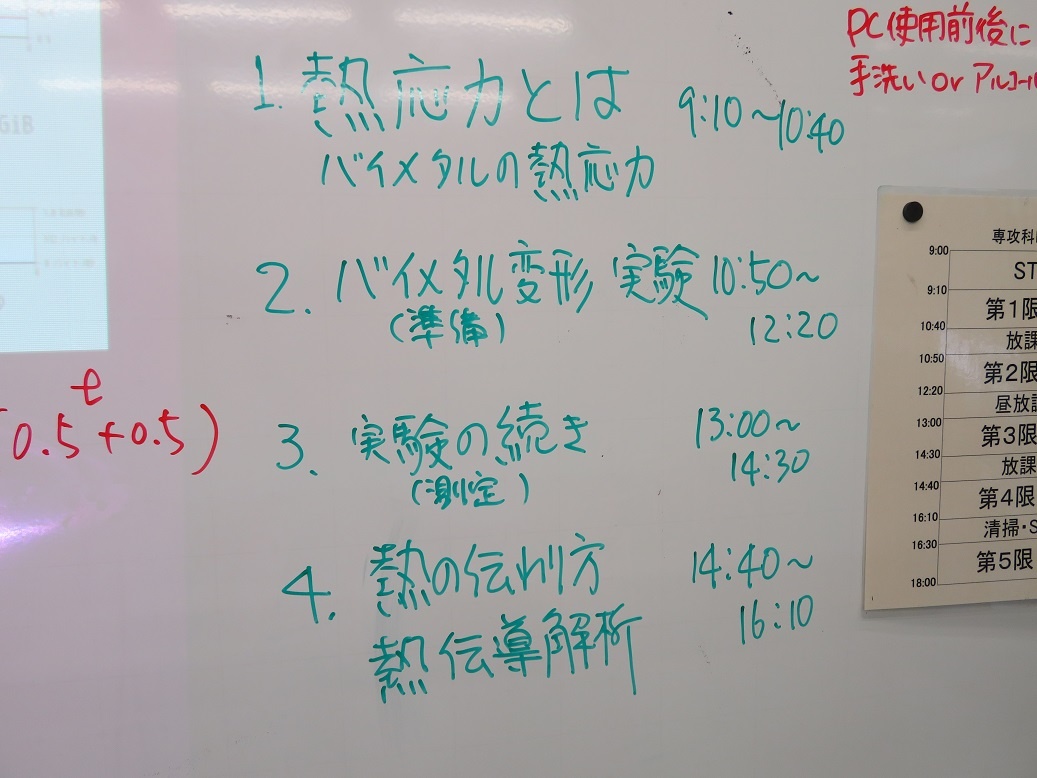 1. 熱応力とは 9:10〜10:40
バイメタルの熱応力
2. バイメタル変形 実験 10:50〜
(準備) 12:20
3. 実験の続き 13:00〜
(測定) 14:30
4. 熱の伝わり方 14:40〜
16:10
熱伝導解析
t
0.5+0.5)
PC使用前後に
手洗い or アルコール
専攻科
9:00
ST
9:10
第1限
10:40
放課
10:50
第2限
12:20
昼放課
13:00
第3限
14:30
放課
14:40
第4限
16:10
清掃・S
16:30
第5限
18:00